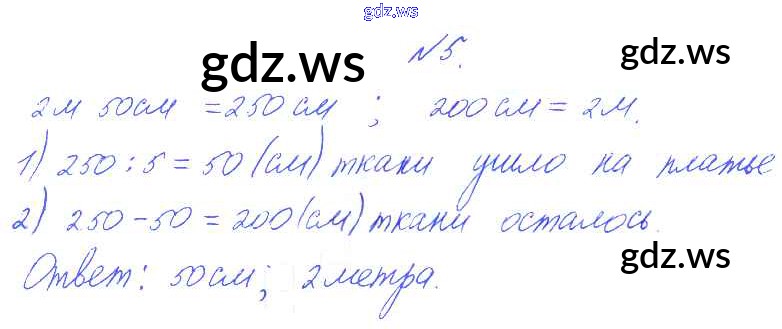 gdz.ws
№5.
gdz.ws
gdz.ws
2м 50см = 250 см ; 200 см = 2м.
1) 250 : 5 = 50 (см) ткани ушло на платье
2) 250 - 50 = 200 (см) ткани осталось.
gdz.ws
gdz.ws
Ответ: 50см; 2 метра.